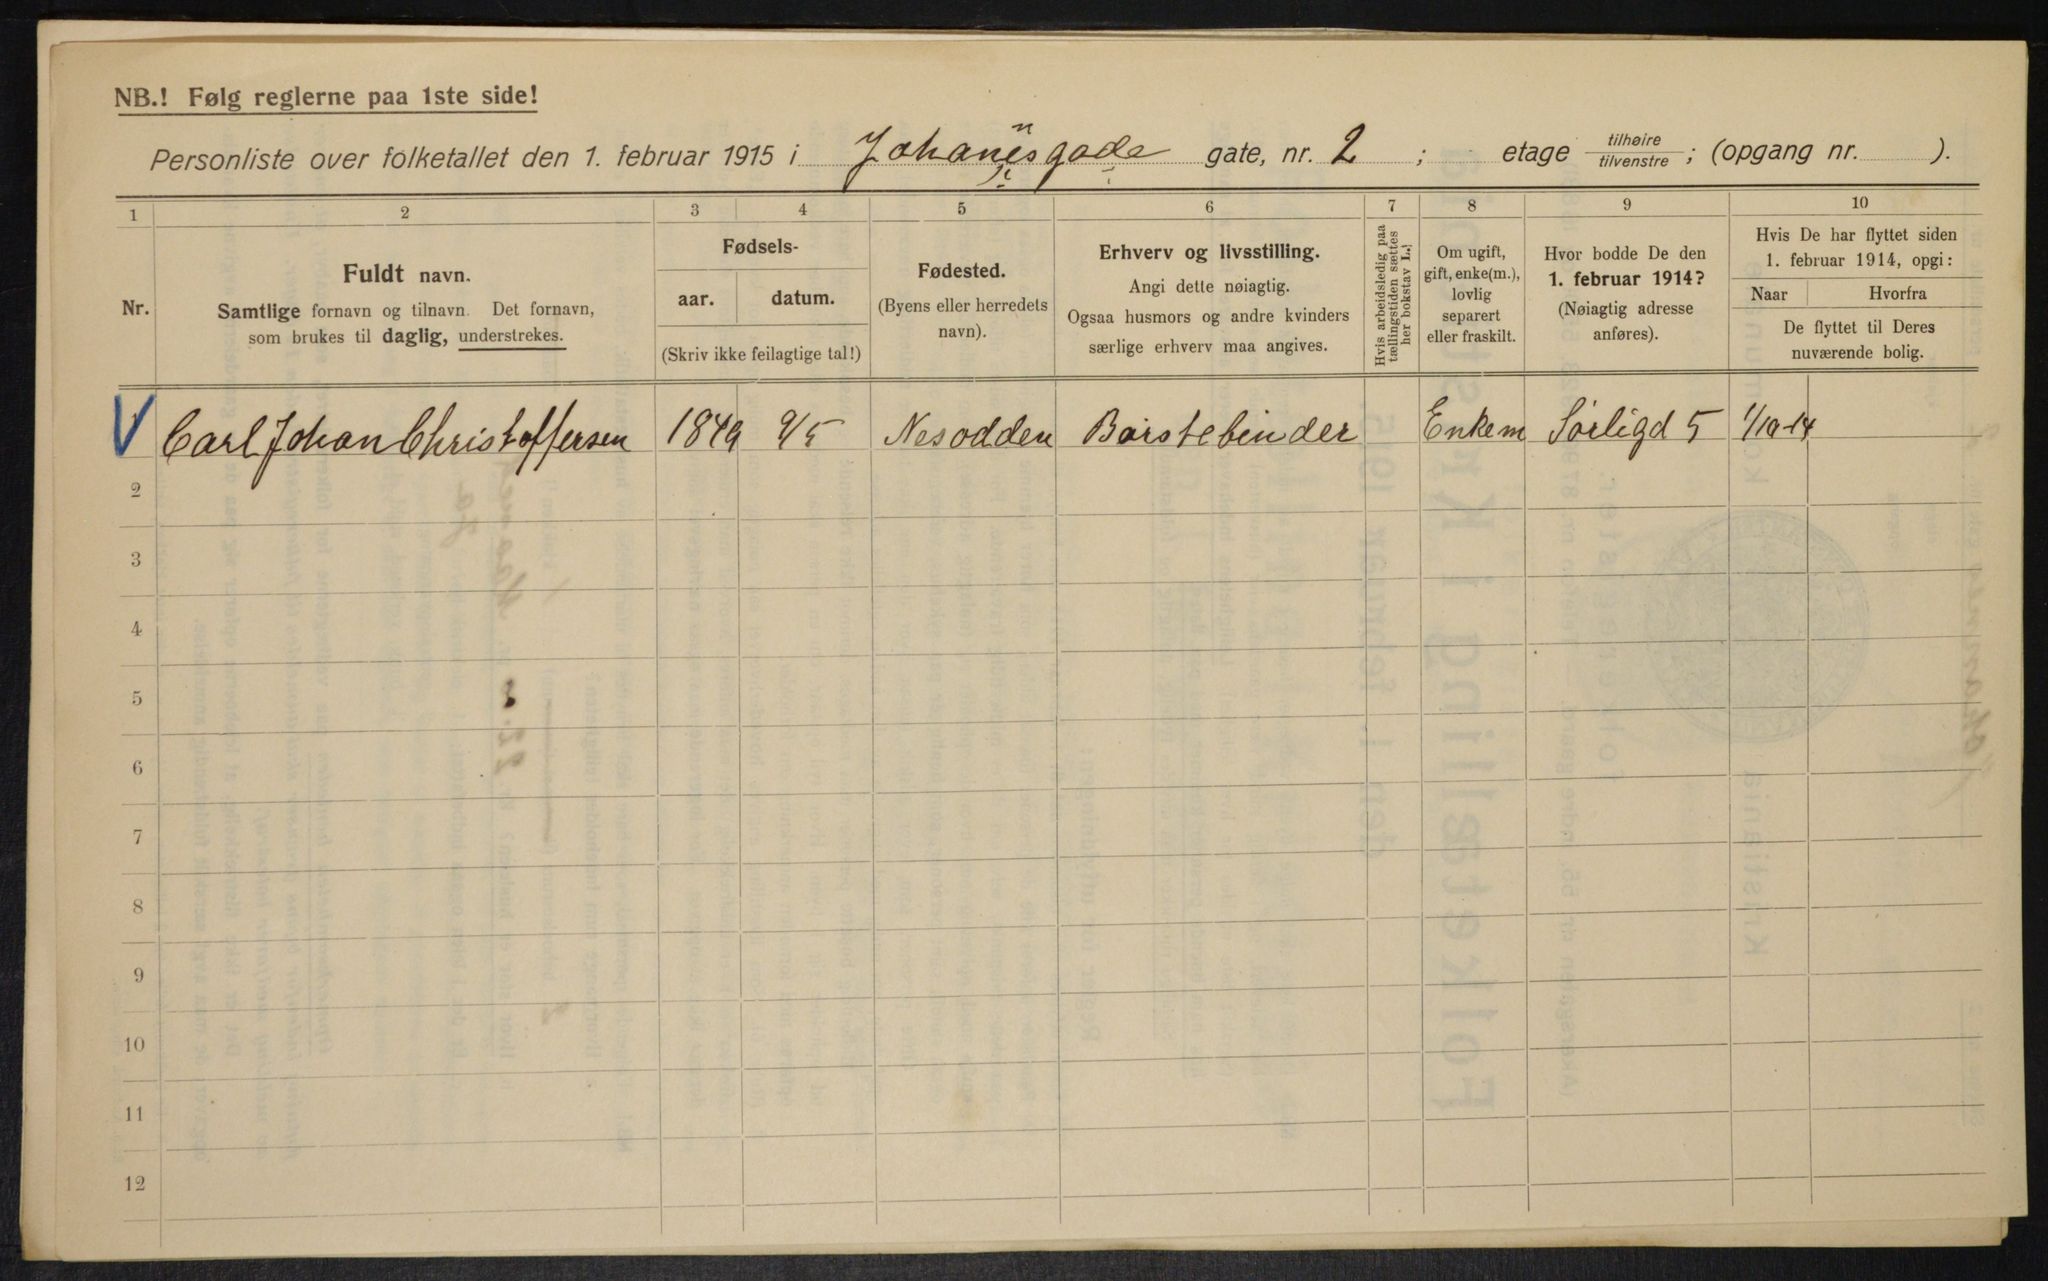 NB.! Følg reglerne paa 1ste side!
Personliste over folketallet den 1. februar 1915 i Johannesgade gate, nr. 2 ; etage tilhøire/tilvenstre ; (opgang nr. ).
1 2 3 4 5 6 7 8 9 10
Nr.
Fuldt navn.
Samtlige fornavn og tilnavn. Det fornavn,
som brukes til daglig, understrekes.
Fødsels-
aar. datum.
(Skriv ikke feilagtige tal!)
Fødested.
(Byens eller herredets
navn).
Erhverv og livsstilling.
Angi dette nøiagtig.
Ogsaa husmors og andre kvinders
særlige erhverv maa angives.
Hvis arbeidsledig paa
tællingstiden sættes
her bokstav L.!
Om ugift,
gift, enke(m.),
lovlig
separert
eller fraskilt.
Hvor bodde De den
1. februar 1914?
(Nøiagtig adresse
anføres).
Hvis De har flyttet siden
1. februar 1914, opgi:
Naar Hvorfra
De flyttet til Deres
nuværende bolig.
Carl Johan Christoffersen 1849 9/5 Nesodden Børstebinder Enkem Sørligd 5 1/10-14
2
3
4
5
6
7
8
9
10
11
12